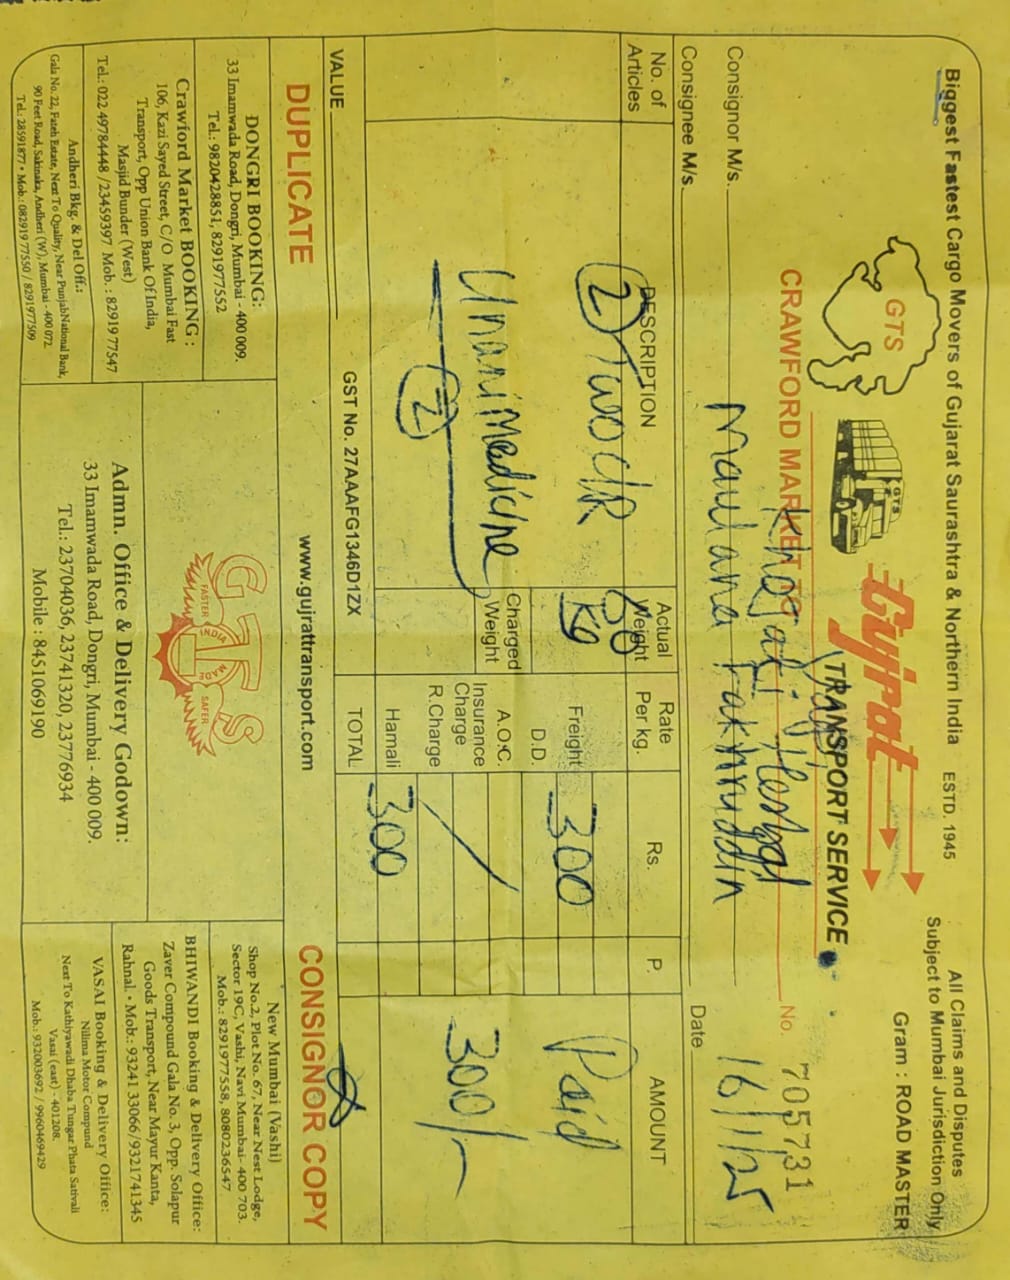 Biggest Fastest Cargo Movers of Gujarat Saurashtra & Northern India ESTD. 1945
All Claims and Disputes
Subject to Mumbai Jurisdiction Only
Gram : ROAD MASTER
GTS
GTS
Gujrat
TRANSPORT SERVICE
CRAWFORD MARKET TO
No. 705731
Consignor M/s.
Maulana Fakhruddin
Date 16/1/25
Consignee M/s.
No. of Articles
DESCRIPTION
Actual Weight
Rate Per kg.
Rs.
P.
AMOUNT
2 Two
80 Kg
Freight
300
Paid
D.D.
Unani Medicine
Charged Weight
A.O.C.
Insurance Charge
300/-
R.Charge
2
Hamali
VALUE
GST No. 27AAAFG1346D1ZX
TOTAL
300
DUPLICATE
www.gujrattransport.com
CONSIGNOR COPY
DONGRI BOOKING:
33 Imamwada Road, Dongri, Mumbai - 400 009.
Tel.: 9820428851, 8291977552
Crawford Market BOOKING :
106, Kazi Sayed Street, C/O Mumbai Fast
Transport, Opp Union Bank Of India,
Masjid Bunder (West)
Tel.: 022 49784448 /23459397 Mob. : 8291977547
Andheri Bkg. & Del Off.:
Gala No. 22, Fateh Estate, Next To Quality, Near PunjabNational Bank,
90 Feet Road, Sakinaka, Andheri (W), Mumbai - 400 072.
Tel.: 28591877 • Mob.: 082919 77550 / 8291977509
GTS
FASTER
INDIA
MADE
SAFER
Admn. Office & Delivery Godown:
33 Imamwada Road, Dongri, Mumbai - 400 009.
Tel.: 23704036, 23741320, 23776934
Mobile : 8451069190
New Mumbai (Vashi)
Shop No.2, Plot No. 67, Near Nest Lodge,
Sector 19C, Vashi, Navi Mumbai- 400 703.
Mob.: 8291977558, 8080236547
BHIWANDI Booking & Delivery Office:
Zaver Compound Gala No. 3, Opp. Solapur
Goods Transport, Near Mayur Kanta,
Rahnal. • Mob.: 93241 33066/9321741345
VASAI Booking & Delivery Office:
Nilima Motor Compund
Next To Kathiyawadi Dhaba Tungar Phata Sativali
Vasai (east) - 401208.
Mob.: 932003692 / 9960469429